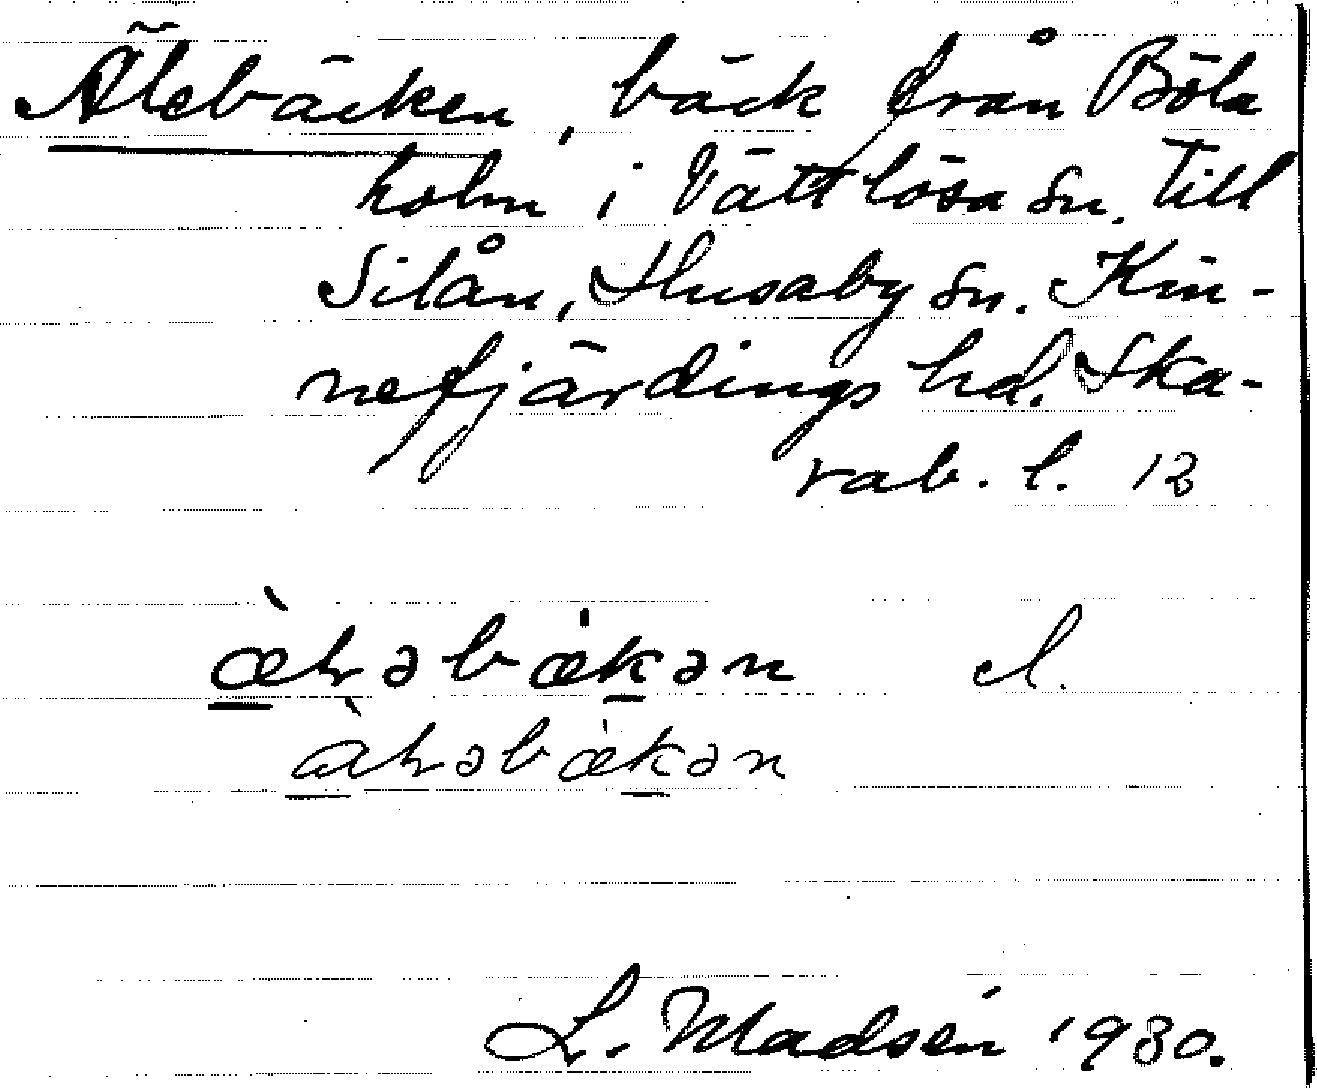 Älebäcken, bäck från Böla
holm i Vättlösa sn. till
Silån, Husaby sn. Kin-
nefjärdings hd. Ska-
rab. l. 12
æ̀ɫəbækən el.
àɫəbækən
L. Madsén 1930.